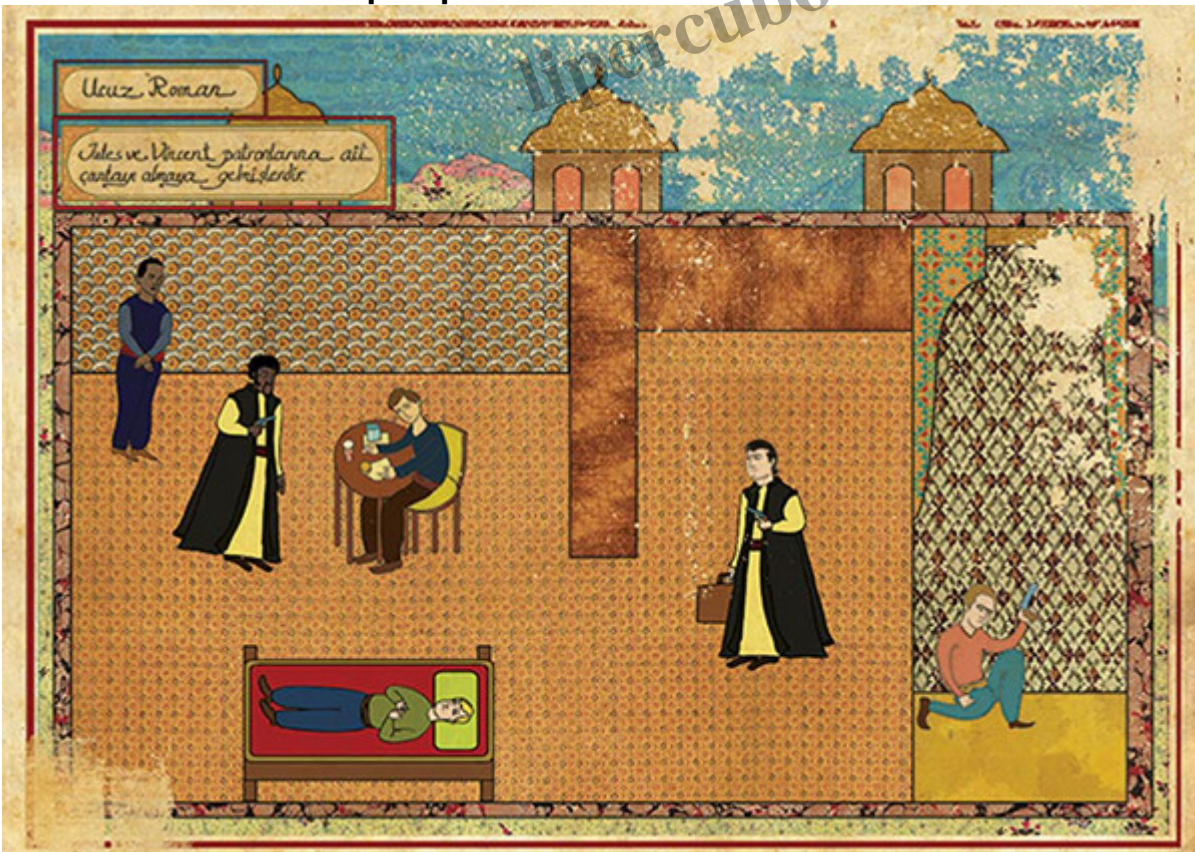 lipercubo
Ucuz Roman
Jules ve Vincent patronlarına ait
çantayı almaya gelmişlerdir.